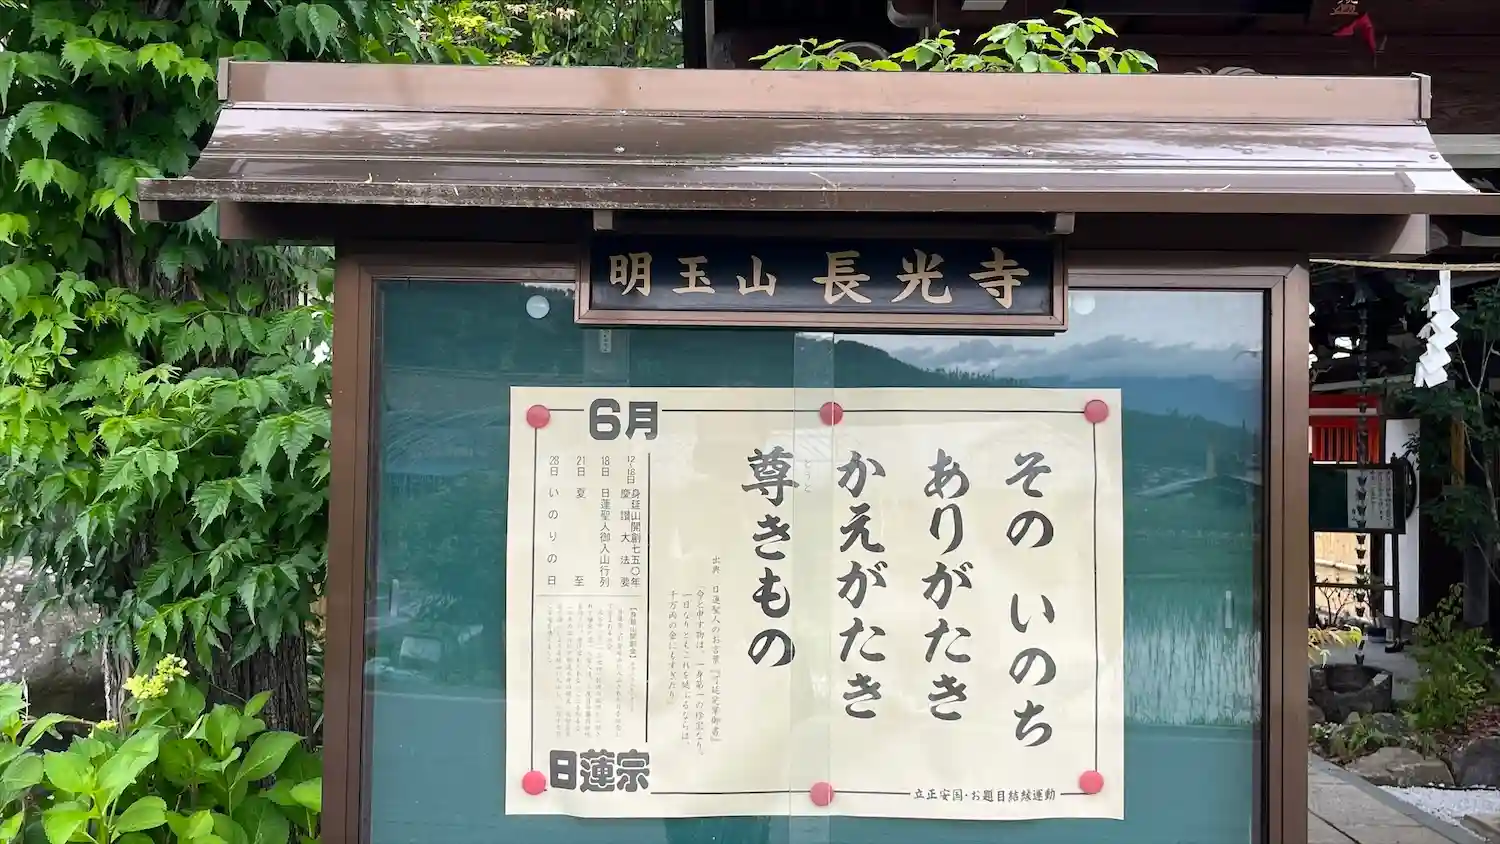 明玉山 長光寺
その いのち
ありがたき
かえがたき
尊きもの
とうと
出典 日蓮聖人のお言葉『可延定業御書』
「命と申す物は、一身第一の珍宝なり。
一日なりともこれを延ぶるならば、
千万両の金にもすぎたり」
6月
12~16日 身延山開創七五〇年慶讃大法要
18日 日蓮聖人御入山行列
21日 夏至
28日 いのりの日
日蓮宗
立正安国・お題目結縁運動